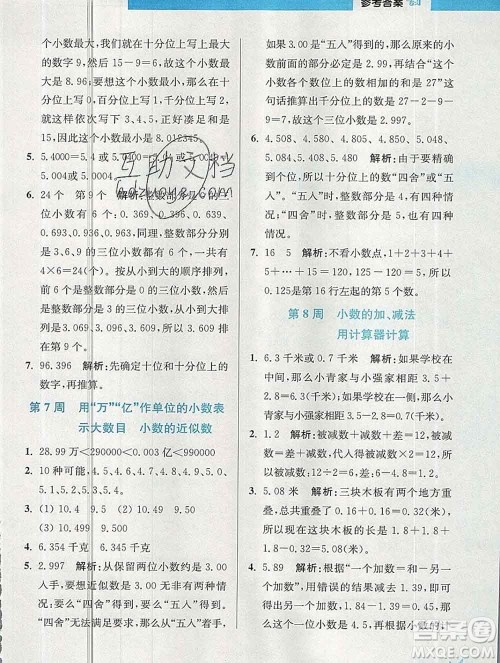 参考答案
个小数最大，我们就在十分位上写最
大的数字9，然后在百分位上写8，最
大的小数是8.96；要使这个小数最
小，那么在十分位上写0，百分位上写
1，接着在千分位上写2，后面依次写
3、4、5，正好满足和是23的要求，也
就是这个小数最小是8.012345。
5. 5.4000 5.4004 5.0400
5.004 5.0004
6. 24个 第9个 解析：整数部分是0
的三位小数有0.369、0.396、0.639、
0.693、0.936、0.963，整数部分分别是
3、6、9的三位小数也都有6个，共24
个。从小到大的顺序排列，前6个是
整数部分是0的三位小数，接着6个
是整数部分是3的三位小数，从小到大排
列为3.069、3.096、3.609……所以
3.609从小到大排在第9个。
7. 96.396 解析：先确定十位和十分位上的数字，
再推算。
第7周 用“万”“亿”作单位的小数表
示大数目 小数的近似数
1. 28.99万<290000<0.003亿<990000
2. 10种可能，4.5、4.6、4.7、4.8、4.9、5.0、
5.1、5.2、5.3、5.4。
3. (1) 10.4 9.5 (2) 10.49 9.50
(3) 10.499 9.500
4. 6.354千克 6.345千克
5. 2.997 解析：与这个小数最接近的整
数是3，而整数部分是2的三位小数要
么“四舍”得到，要么“五入”得到，由于
“四舍”无法满足题目要求，只有“五入”。
如果3.00是“五入”得到的，那么前
面的部分必定是2.99，再结合“这个
小数各个数位上的数相加的和是27”这
句话推算出千分位上是27－2－9－
9＝7，所以这个小数是2.997。
6. 4.508、4.509、4.510、4.511、4.512、
4.513、4.514 解析：由于要精确到
百分位，因此要看千分位上的数，“四
舍”，整数部分是4，“五入”，整数部分
也是4。
7. 16 5 解析：不看小数点，1+2+3+4
+5+……+15＝120，120+5＝125，
所以是第16行左起的第5个数。
第8周 小数的加、减法
用计算器计算
1. 6.3千米或0.7千米 解析：如果学校在
中间，那么小青家与小强家相距
3.5+2.8＝6.3(米)；如果小青家、小
强家在学校的同一方向，那么小青
家与小强家相距3.5－2.8＝0.7(米)。
2. 1.2 解析：被减数+减数+差＝12，
被减数＝减数+差，代入得被减数+被
减数＝12，被减数＝12÷2＝6，所以差
是6－4.8＝1.2。
3. 5.08米 解析：三块木板有两个地方
重叠，重叠了0.16+0.16＝0.32(米)，
所以这块木板总长1.8+1.8+1.8－
0.32＝5.08(米)。
4. 8.1 解析：根据“一个加数＝和－另一
个加数”，用错误的结果倒推出另一个
加数是9.9－1.8＝8.1，